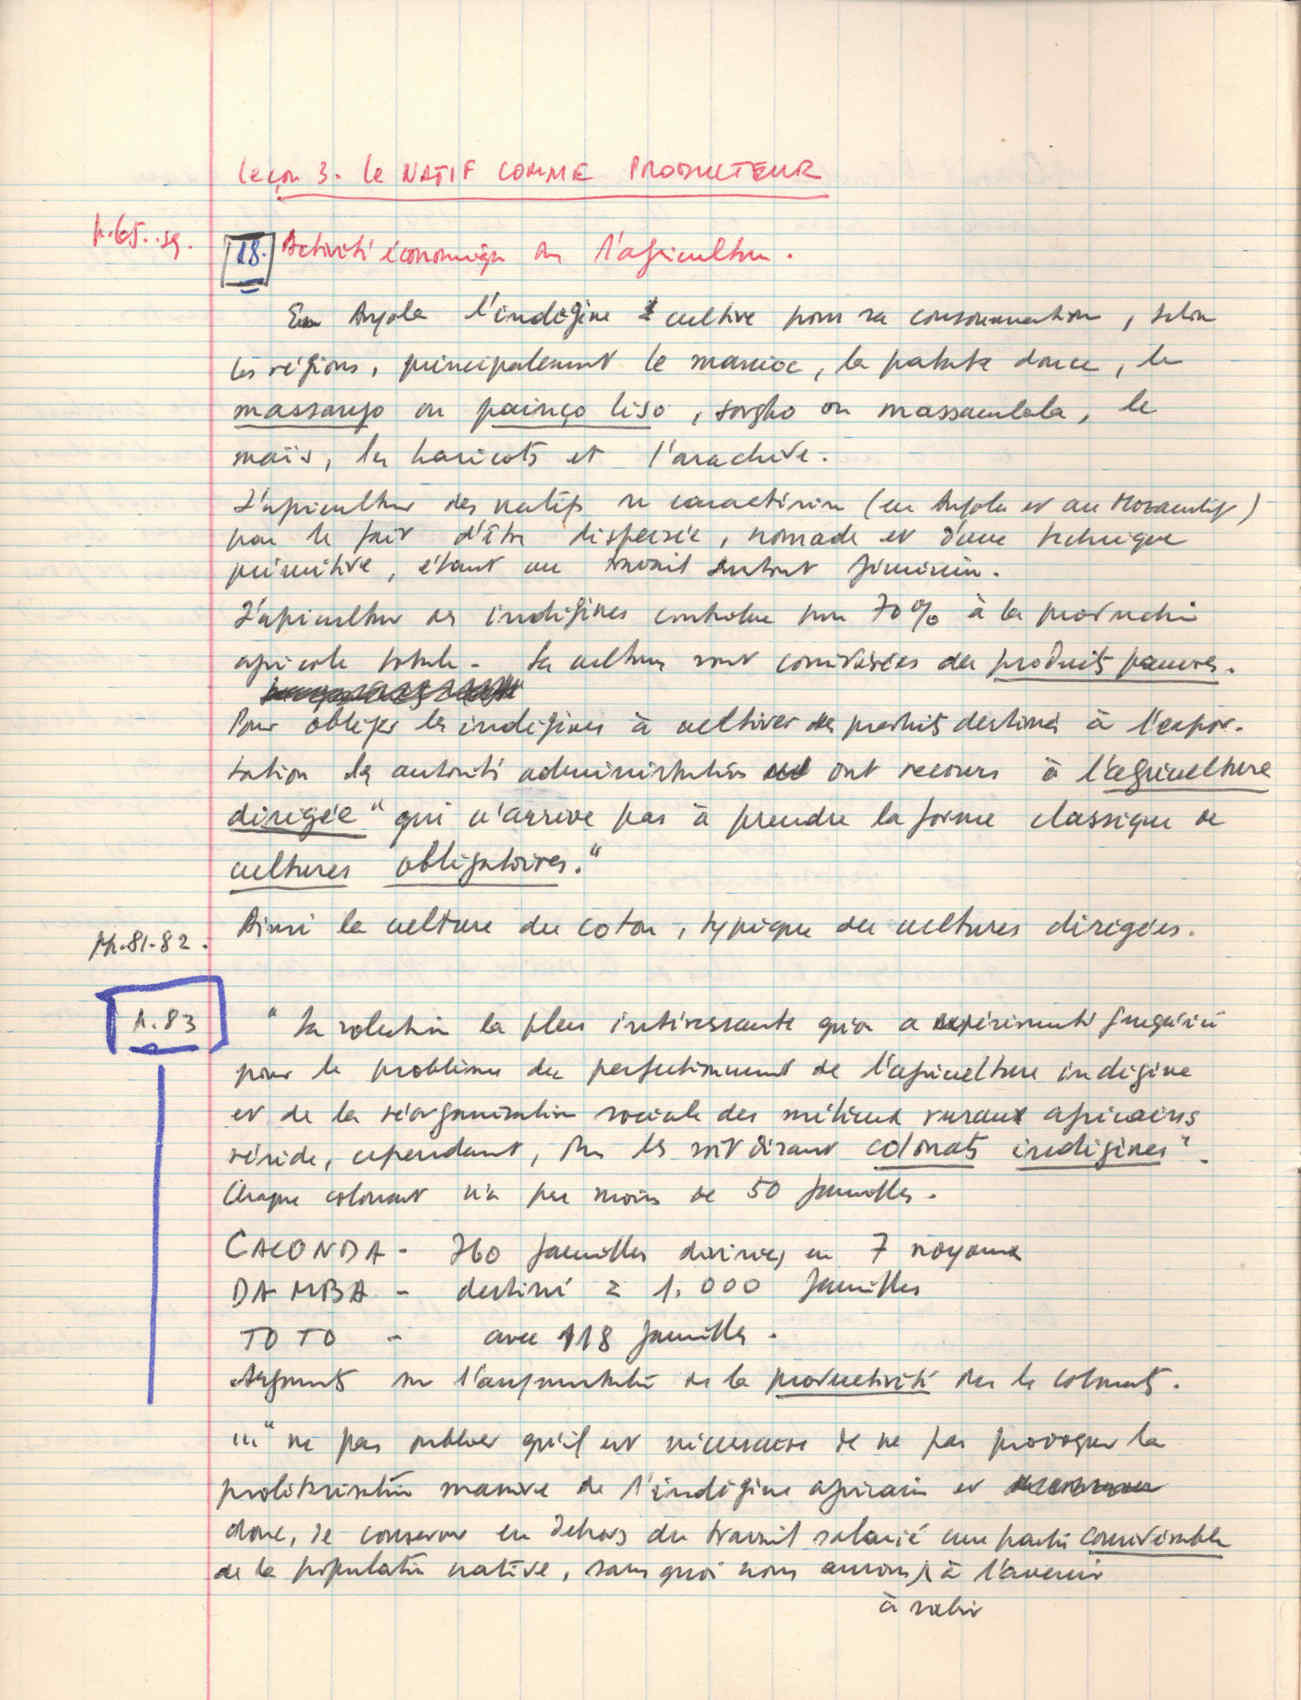 Leçon 3. Le NATIF COMME PRODUCTEUR
p.65.sq.
18. Activité économique l'agriculture.
En Angola l'indigène cultive pour sa consommation, selon
les régions, principalement le manioc, la patate douce, le
massango ou painço liso, sorgho ou massambala, le
maïs, les haricots et l'arachide.
L'agriculture des natifs se caractérise (en Angola et au Mozambique)
par le fait d'être dispersée, nomade et d'une technique
primitive, étant un travail surtout féminin.
L'agriculture des indigènes contribue pour 70% à la production
agricole totale. Les cultures sont considérées des produits pauvres.
Pour obliger les indigènes à cultiver des produits destinés à l'expor-
tation les autorités administratives ont recours à l'agriculture
dirigée "qui n'arrive pas à prendre la forme classique de
cultures obligatoires."
Ainsi la culture du coton, typique des cultures dirigées.
pp.81-82.
p.83
"La solution la plus intéressante qu'on a expérimenté jusqu'ici
pour le problème du perfectionnement de l'agriculture indigène
et de la réorganisation sociale des milieux ruraux africains
réside, cependant, dans les soit disant colonats indigènes".
Chaque colonat n'a pas moins de 50 familles.
CACONDA - 760 familles divisées en 7 noyaux
DAMBA - destiné à 1.000 familles
TOTO - avec 118 familles.
Arguments sur l'augmentation de la productivité des colonats.
..."ne pas oublier qu'il est nécessaire de ne pas provoquer la
prolétarisation massive de l'indigène africain et
donc, de conserver en dehors du travail salarié une partie considérable
de la population native, sans quoi nous aurons à l'avenir
à subir